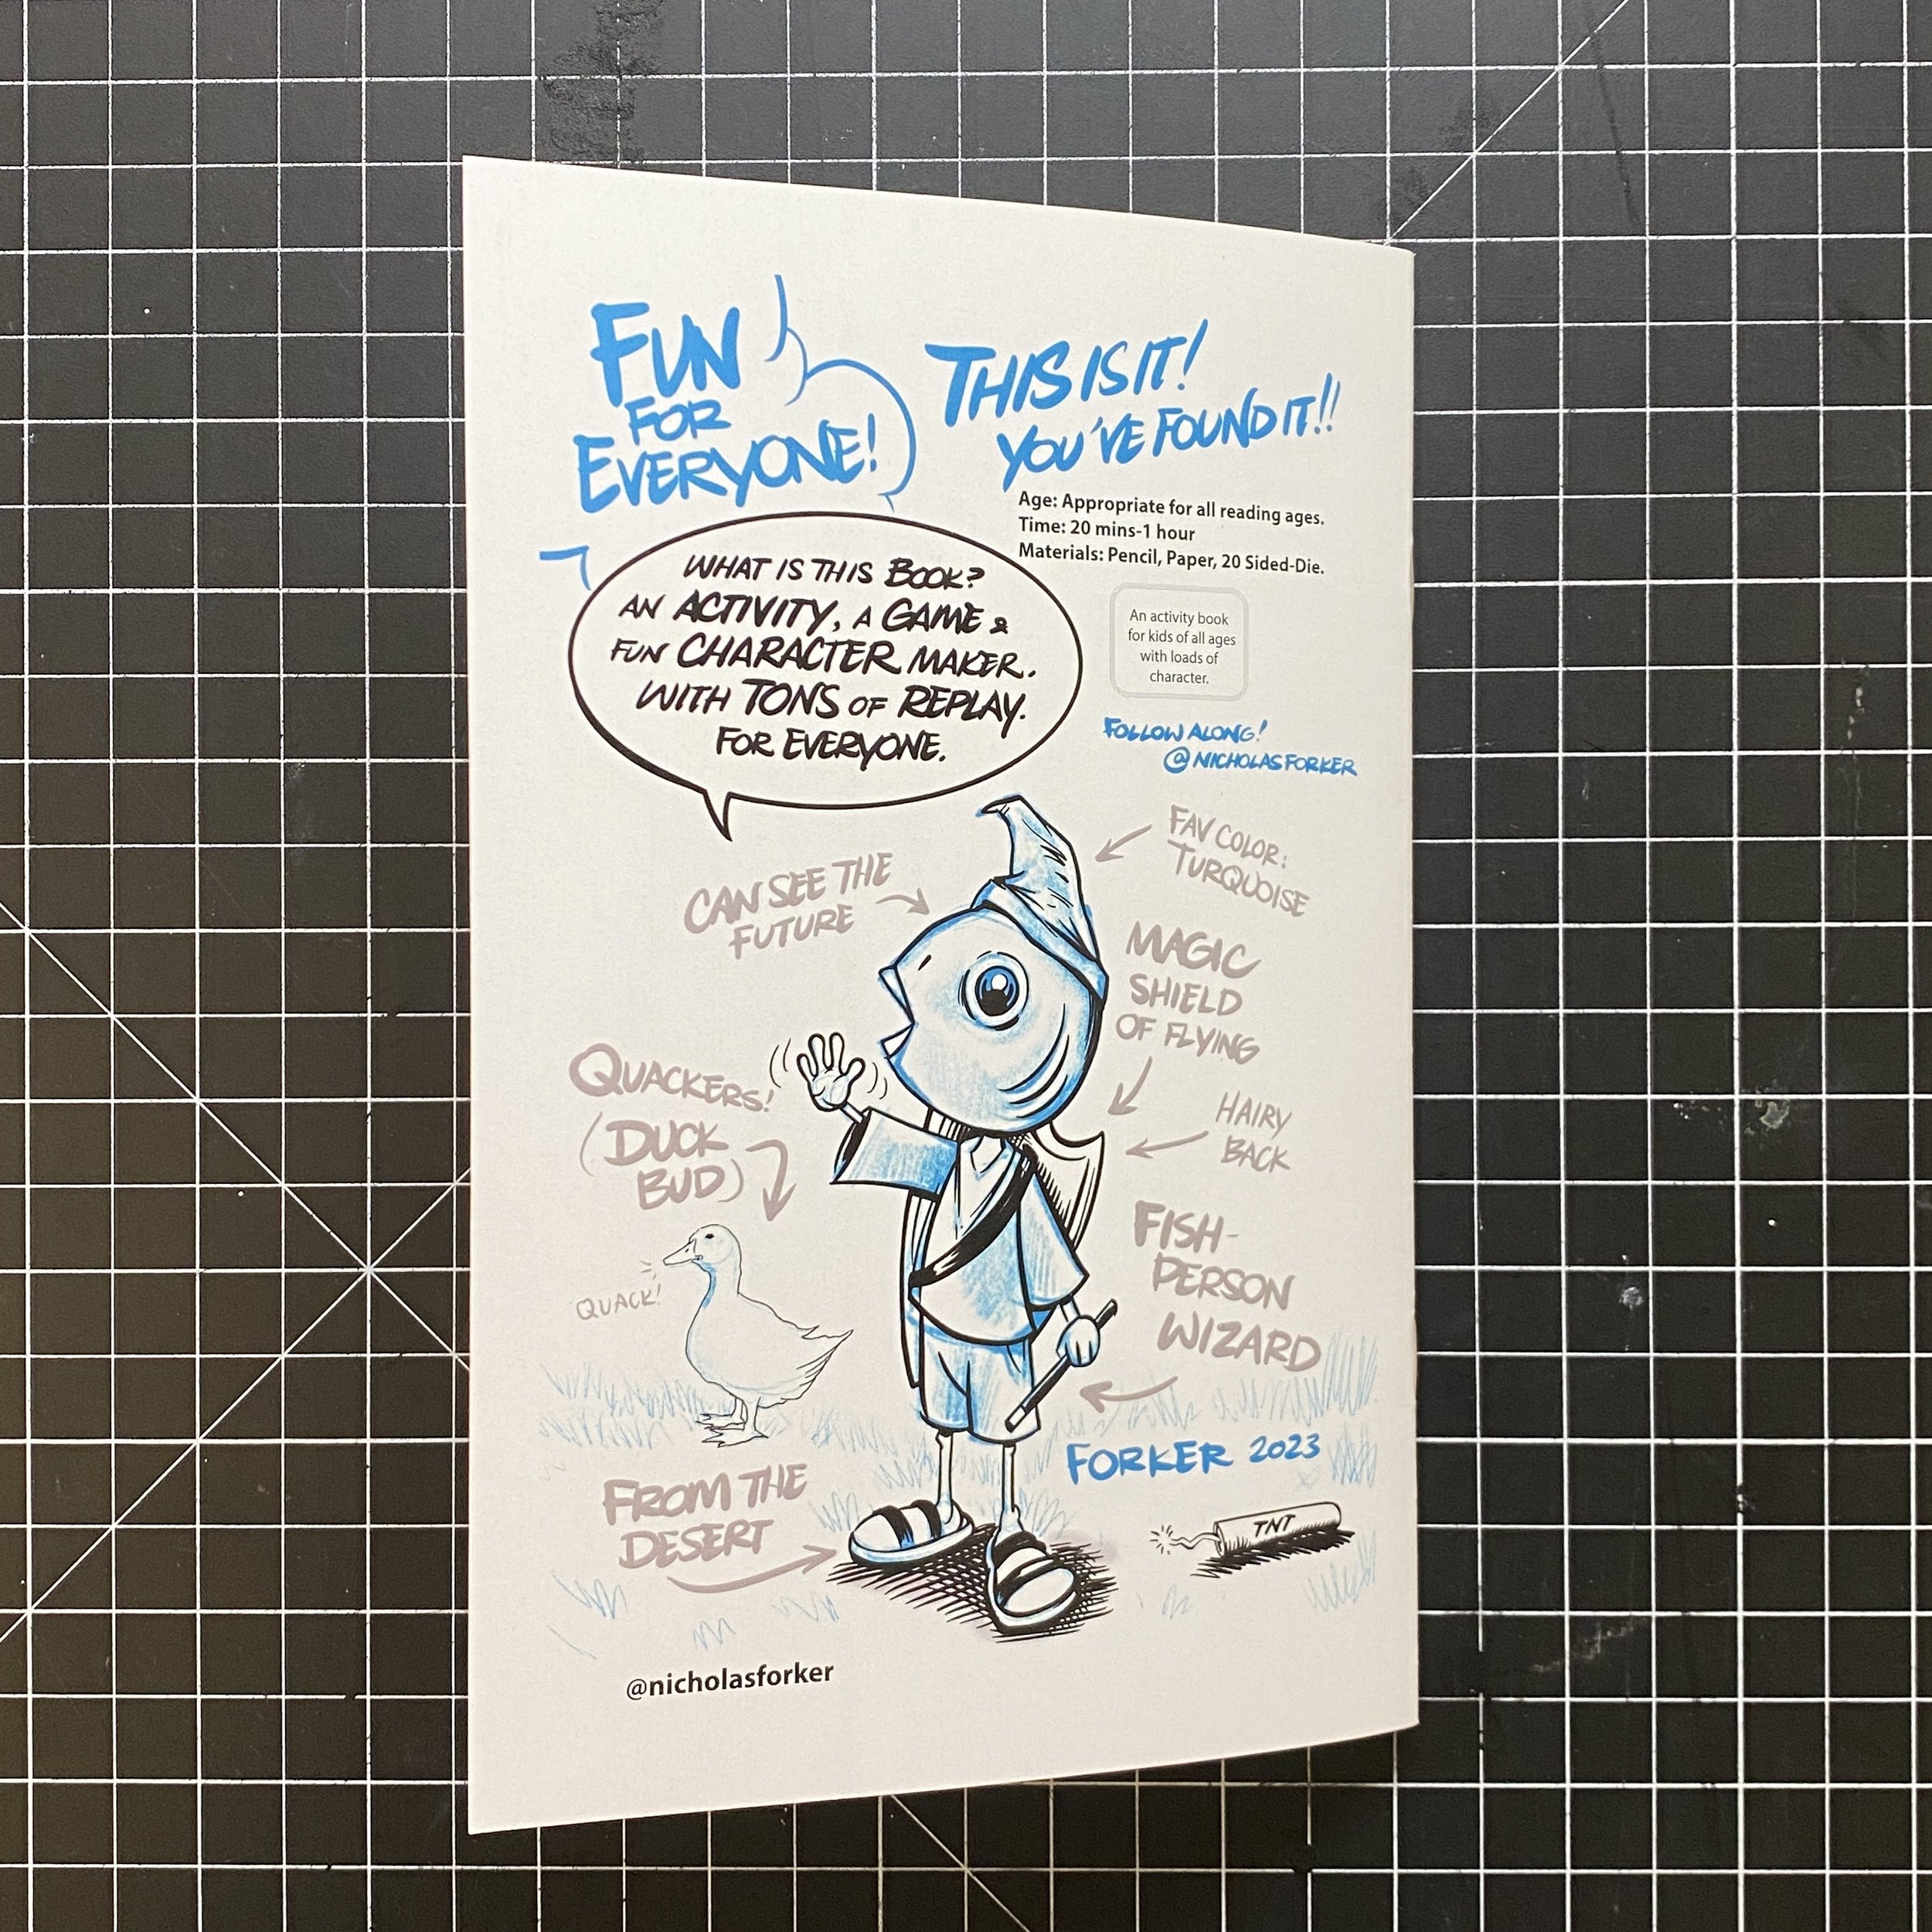 FUN
FOR
EVERYONE!
THIS IS IT!
YOU'VE FOUND IT!!
Age: Appropriate for all reading ages.
Time: 20 mins-1 hour
Materials: Pencil, Paper, 20 Sided-Die.
WHAT IS THIS BOOK?
AN ACTIVITY, A GAME &
FUN CHARACTER MAKER.
WITH TONS OF REPLAY.
FOR EVERYONE.
An activity book
for kids of all ages
with loads of
character.
FOLLOW ALONG!
@NICHOLASFORKER
FAV COLOR:
TURQUOISE
CAN SEE THE
FUTURE
MAGIC
SHIELD
OF FLYING
QUACKERS!
(DUCK
BUD)
HAIRY
BACK
FISH-
PERSON
WIZARD
QUACK!
FORKER 2023
FROM THE
DESERT
TNT
@nicholasforker